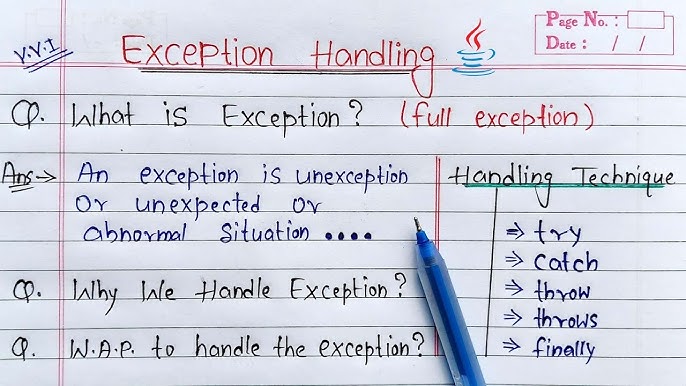 V.V.I
Exception Handling
Page No. :
Date : / /
Q. What is Exception? (full exception)
Ans → An exception is unexception
Or unexpected or
abnormal Situation ....
Handling Technique
⇒ try
⇒ Catch
⇒ throw
⇒ throws
⇒ finally
Q. Why We Handle Exception?
Q. W.A.P. to handle the exception?